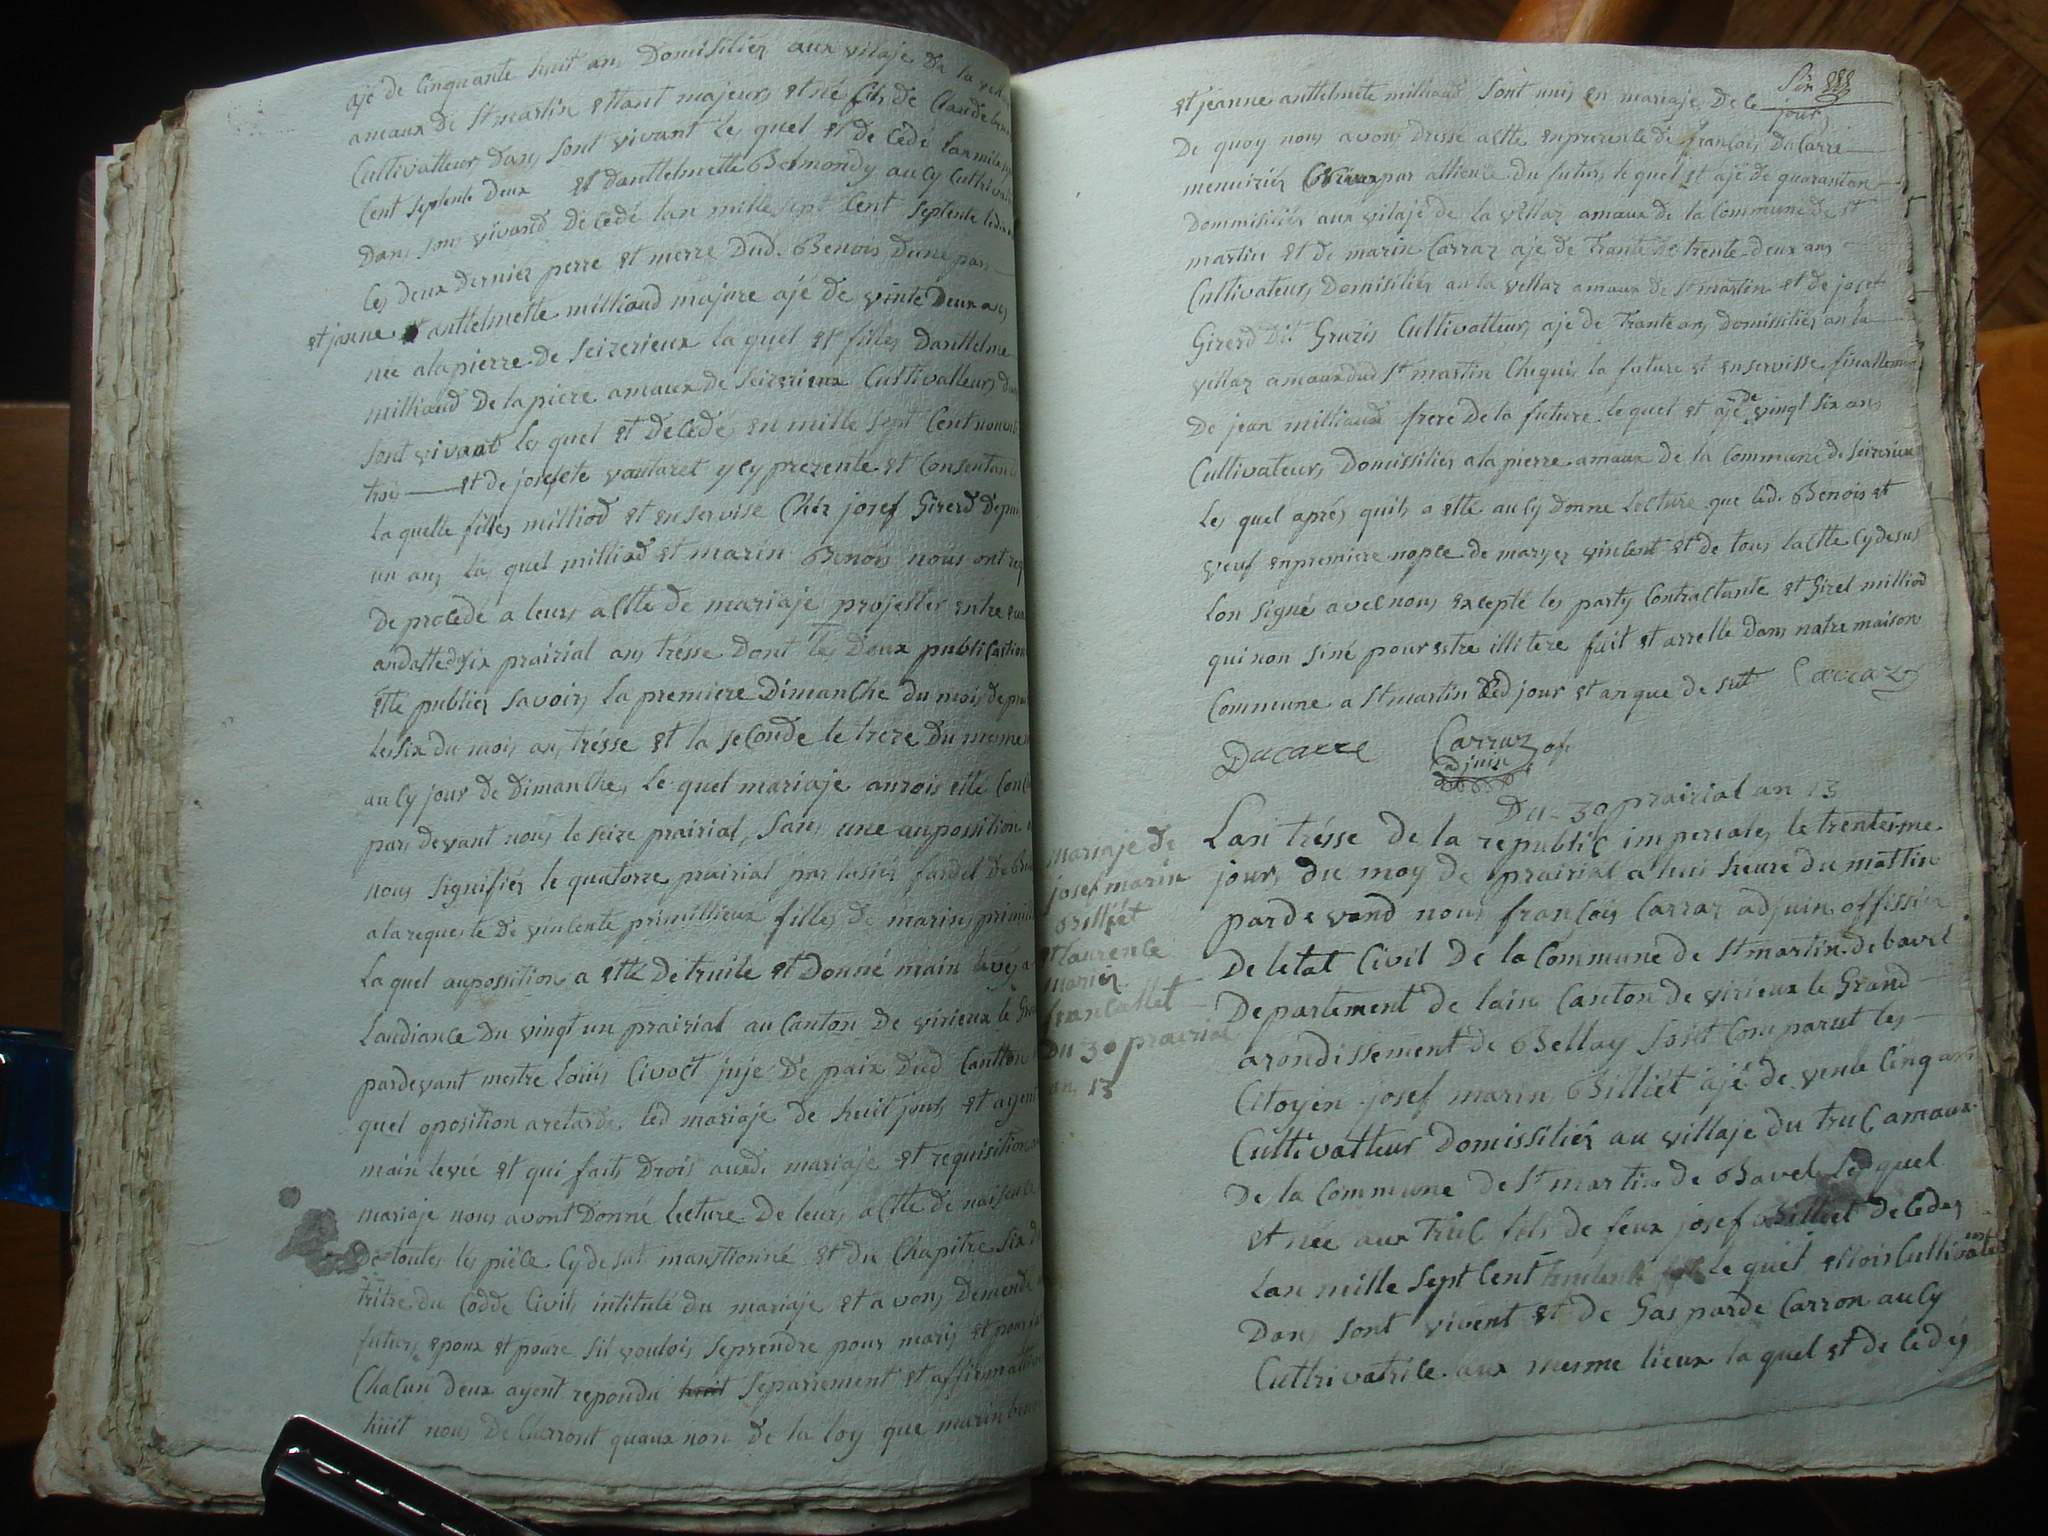 ajé de Cinquante huit ans Domisiliéz aux vilaje De la
amaux de St martin ettant majeurs et né fils de Claude
Cultivatteur Dans sont vivant le quel et de cédé lan mil
Cent septente Deux et danttelmette Belmondy aucy Cultriva
Dans son vivand Dé cédé lan mille sept Cent septente
Ces deux Dernier perre et merre Dud. Benois Dune par
et janne anttelmette milliaud majure ajé De vinte Deux ans
née a la pierre de seizerieux la quel et filles Danttelme
milliaud De la piere amaux de seizerieux Cultivatteur
sont vivant le quel et décédé en mille sept Cent
trois et de josephte vautaret y cy prezente et Consentan
la quelle filles milliod et en servise Chéz josef Girerd Depui
un ans la quel milliod et marin Benois nous ont req
De procede a leurs actte de mariaje projetter entre eux
andatte du six prairial ans trésse Dont les Deux publication
ette publiez savoir la premiere Dimanche du mois de
le six du mois an trésse et la seconde le treze Du mesme
aucy jour de Dimanche, le quel mariaje aurois ette
par devant nous le seize prairial, sans une auposition
nous signifiéz le quatorze prairial par lusiér fardel De
a la requeste De vincente primillieux filles De marin
La quel auposition a ette Détruite et Donné main levéz
Laudiance Du vingt un prairial au Canton De virieux le
pardevant mestre Louis Civoct juje De paix Dud Cantton
quel oposition a retardé led mariaje de huit jours et ayent
main levée et qui faits Drois audi mariaje et requisition
mariaje nous avont Donné lecture De leurs actte de naisence
De toutes les piéce Cy desut manstionné et du Chapitre six
tritre du Codde Civil intitulé du mariaje et avons Demende
futurs epoux et poure sil voulois se prendre pour maris et pour
Chacun deux ayent repondu huit separrement et affirmative
huit nous De Clarront quaux non de la loy que marin
et jeanne anttelmete milliaud sont unis en mariaje De ce
jours
De quoy nous avons dressé actte en prezente de françois DuCarre
menuiriér par allience Du futur le quel et ajé de quaranton
Dommisiliés aux vilaje de la villaz amaux de la Commune de St
martin et de marin Carraz aje de trante de trente deux ans
Cultivateurs Domisiliés au la villaz amaux de St martin et de josef
Girerd Dit Gruzis Cultivatteurs aje de Trante ans Domissilies au la
villaz amaux dud St martin Chequi la future et en servisse finallemen
De jean milliaud frere De la future le quel et ajé de vingt six ans
Cultivateurs Domissilies a la pierre amaux de la Commune de seizerieux
Les quel aprés quils a ette aucy Donne Lecture que led. Benois et
veuf en premiere nopce de maryez vincent et de tous lactte Cy desus
Lon signé avec nous excepté les party Contractante et Girel milliod
qui non siné pour estre illitere fait et arrette Dans natre maison
Commune a St martin Led jour et an que de sut Carraz
Ducarre Carraz of.
adjuin
Du 30 prairial an 13
mariaje de
josef marin
Billiét
et laurence
mariez
francallet
Du 30 prairial
an 13
Lan trésse De la republic imperiale, le trentieme
jours Du moy De prairial a huis heure du mattin
pardevand nous françois Carraz adjuin offissier
De letat Civil De la Commune de St martin de bavel
Departement de lain Canton de virieux le Grand
arondissement de Bellay sosit Comparut les
Citoyen josef marin Billiét ajé de vente Cinq ans
Cultivatteur Domissiliéz au villaje du truc amaux
De la Commune de St martin de Bavel le quel
et née aux Truc fils de feux josef Billiet Décédez
Lan mille sept Cent le quel ettois Cultivateurs
Dans sont vivent et de Gasparde Carron aucy
Cultrivatrice aux mesme lieux la quel et de cédéz